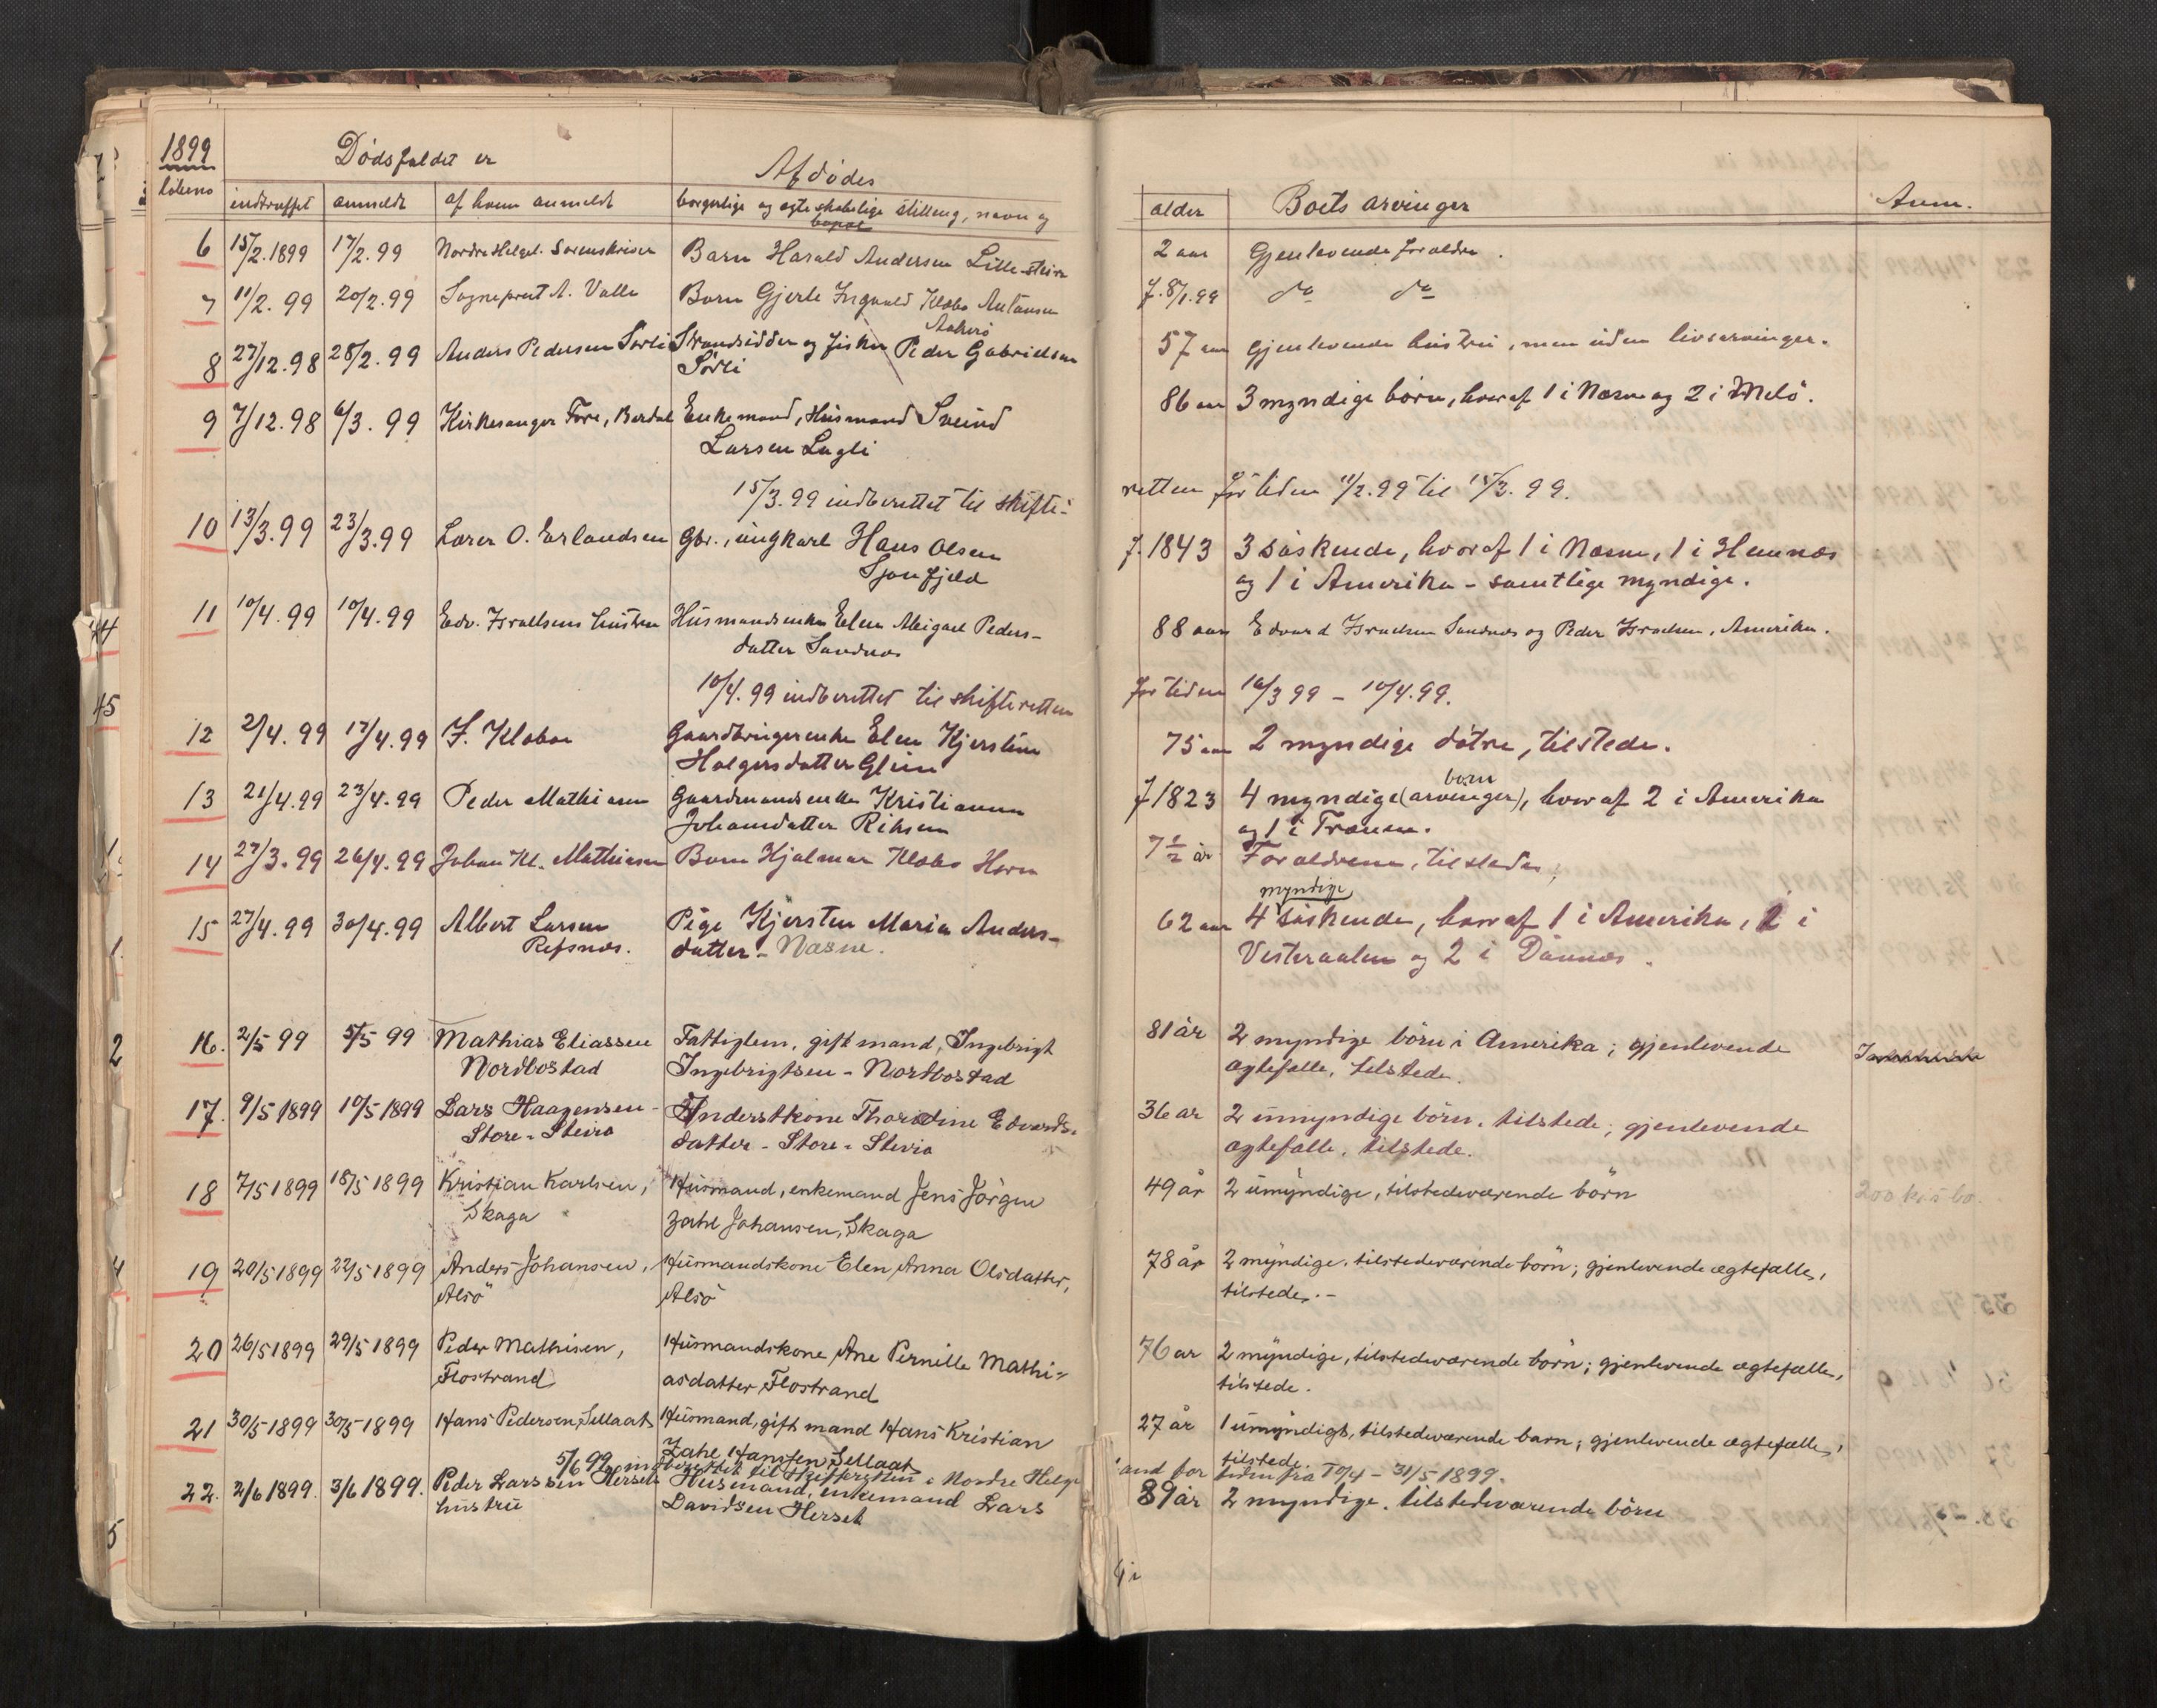 1899
Dødsfaldet er
Afdødes
løbeno
indtruffet anmeldt af hvem anmeldt borgerlige og egteskabelige stilling, navn og
bopæl
alder Boets arvinger Anm.
6 15/2.1899 17/2.99 Nordre Helgel. Sorenskriver Barn Harald Andersen Lille-steira 2 aar Gjenlevende forældre.
7 11/2.99 20/2.99 Sogneprest A. Valle Barn Gjerle Ingvald Klæbo Antonsen f. 8/1.99 do do
Aakerø
8 27/12.98 28/2.99 Anders Pedersen Sørli Strandsidder og fisker Peder Gabrielsen 57 aar gjenlevende hustru, men uden livsarvinger.
Sørli
9 7/12.98 6/3.99 Kirkesanger Fore, Bardal Enkemand, Husmand Sveind 86 aar 3 myndige børn, hvoraf 1 i Næsne og 2 i Melö.
Larsen Lugli
15/3.99 indberettet til skifte- retten for tiden 11/2.99 til 15/3.99.
10 13/3.99 23/3.99 Lærer O. Erlandsen Gbr., ungkarl Hans Olsen f. 1843 3 söskende, hvoraf 1 i Næsne, 1 i Hemnæs
Sjonfjeld og 1 i Amerika - samtlige myndige.
11 10/4.99 10/4.99 Edv. Israelsens hustru Husmandsenke Elen Abigael Peders- 88 aar Edvard Israelsen Sandnæs og Peder Israelsen, Amerika.
datter Sandnæs
10/4.99 indberettet til skifteretten for tiden 16/3 99 - 10/4.99.
12 2/4.99 17/4.99 J. Klæboe Gaardbrugerenke Elen Kjerstine 75 aar 2 myndige døtre, tilstede.
Holgersdatter Glein
13 21/4.99 23/4.99 Peder Mathiasen Gaardmandsenke Kristianna f 1823 4 myndige (arvinger) børn, hvoraf 2 i Amerika
Johansdatter og 1 i Trænen.
14 27/3.99 26/4.99 Johan Kl. Mathiasen Barn Hjalmar Klæbo Horn 7½ år Forældrene, tilstede,
15 27/4.99 30/4.99 Albert Larsen Pige Kjersten Maria Anders- 62 aar 4 myndige söskende, hvoraf 1 i Amerika, 1 i
Refsnæs. datter - Næsne. Vesteraalen og 2 i Dønnæs.
16. 2/5 99 5/5 99 Mathias Eliassen Fattiglem, gift mand, Ingebrigt 81 år 2 myndige börn i Amerika; gjenlevende
Nordbostad Ingebrigtsen - Nordbostad ægtefælle, tilstede.
17. 9/5 1899 10/5 1899 Lars Haagensen - Inderstkone Thordine Edvards- 36 ar 2 umyndige börn. tilstede; gjenlevende
Store-Steira datter - Store-Steira ægtefælle, tilstede.
18 7/5 1899 18/5 1899 Kristian Karlsen, Husmand, enkemand Jens Jörgen 49 år 2 umyndige, tilstedeværende börn 200 kr i bo.
Skaga Zahl Johansen, Skaga
19 20/5 1899 22/5 1899 Anders Johansen, Husmandskone Elen Anna Olsdatter, 78 år 2 myndige, tilstedeværende börn; gjenlevende ægtefælle,
Alsö Alsö tilstede. -
20 26/5 1899 29/5 1899 Peder Mathisen, Husmandskone Ane Pernille Mathi- 76 ar 2 myndige, tilstedeværende börn; gjenlevende ægtefælle,
Flostrand asdatter, Flostrand tilstede.
21 30/5 1899 30/5 1899 Hans Pedersen, Sellaat Husmand, gift mand Hans Kristian 27 år 1 umyndigt, tilstedeværende barn; gjenlevende ægtefælle,
Zahl Hansen, Sellaat tilstede.
5/6 99 indberettet til skifteretten i Nordre Helge- land for tiden fra 10/4 - 31/5 1899.
22. 2/6 1899. 3/6 1899. Peder Larssen Hersets Husmand, enkemand Lars 89 år 2 myndige. tilstedeværende börn
hustru Davidsen Herset